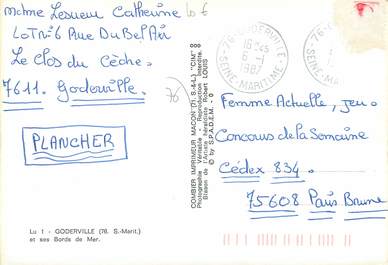 Mdme Lesueur Catherine
LOT N°6 Rue Du Bel Air
Le Clos du Cèche.
7611. Goderville.
PLANCHER
Lu 1 - GODERVILLE (76. S.-Marit.)
et ses Bords de Mer.
Lo 6
76
COMBIER IMPRIMEUR MACON (71. S.-&-L.) "CIM"
Photographie Véritable - Reproduction Interdite.
Blason de l'Artiste héraldiste Robert LOUIS
© by S.P.A.D.E.M. - 0
76 GODERVILLE
16 H 45
6 - 1
1987
SEINE-MARITIME
Femme Actuelle, jeu.
Concours de la Semaine
Cédex 834.
75608 Paris Brune